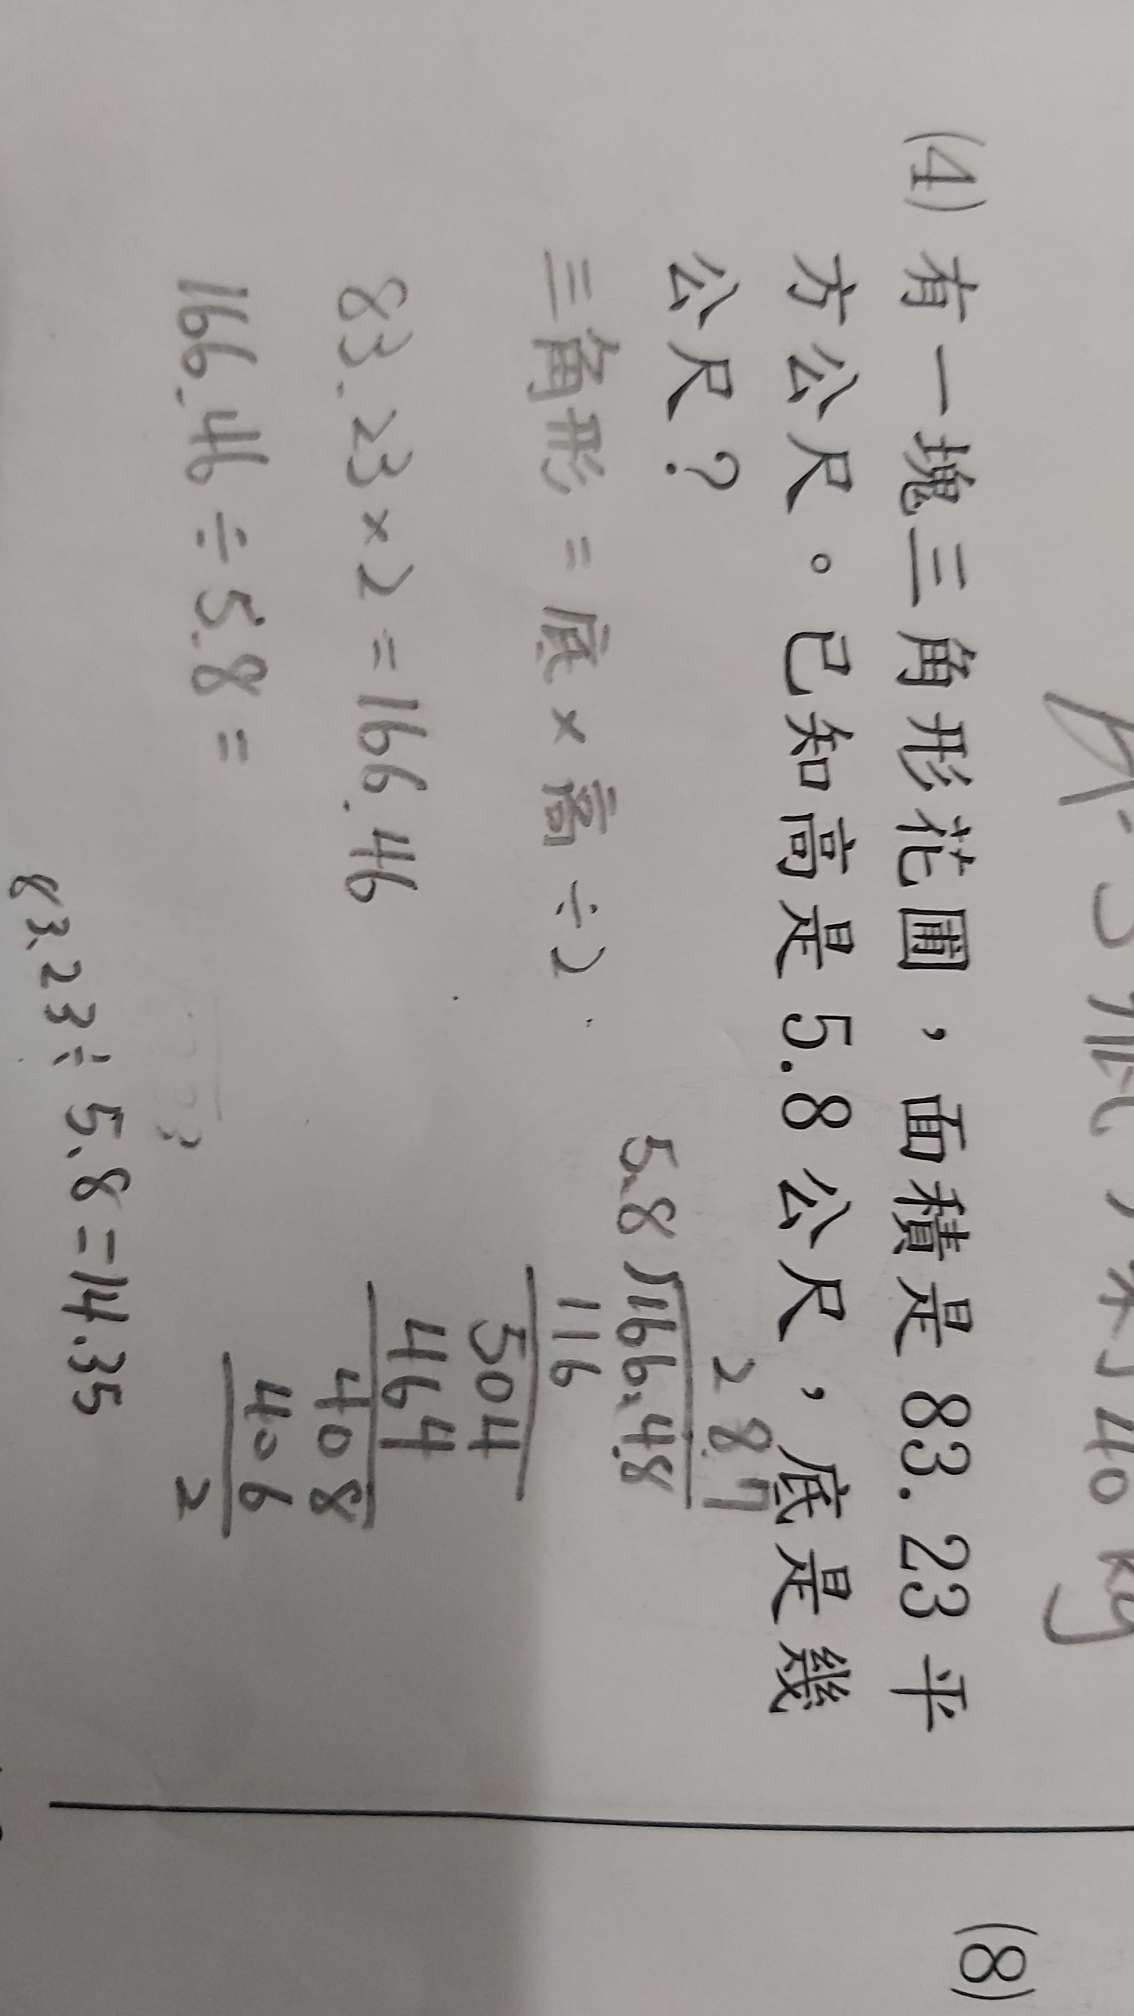 (4) 有一塊三角形花圃，面積是 83.23 平
方公尺。已知高是 5.8 公尺，底是幾
公尺？
三角形=底×高÷2
83.23×2=166.46
166.46÷5.8=
28.7
5.8 166.48
116
504
464
408
406
2
83.23÷5.8=14.35
40 kg
(8)